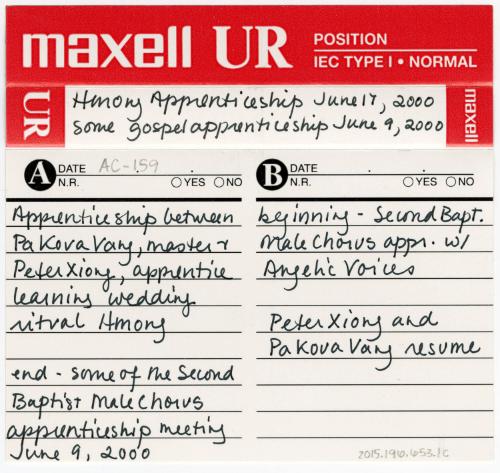 maxell UR POSITION
IEC TYPE I • NORMAL
UR
Hmong Apprenticeship June 17, 2000
some gospel apprenticeship June 9, 2000
maxell
A DATE AC-159
N.R. YES NO
Apprenticeship between
Pa Kova Vang, master &
Peter Xiong, apprentice
learning wedding
ritual Hmong
end - some of the Second
Baptist Male Chorus
apprenticeship meeting
June 9, 2000
B DATE
N.R. YES NO
beginning - Second Bapt.
Male Chorus appr. w/
Angelic Voices
Peter Xiong and
Pa Kova Vang resume
2015.196.653.1c